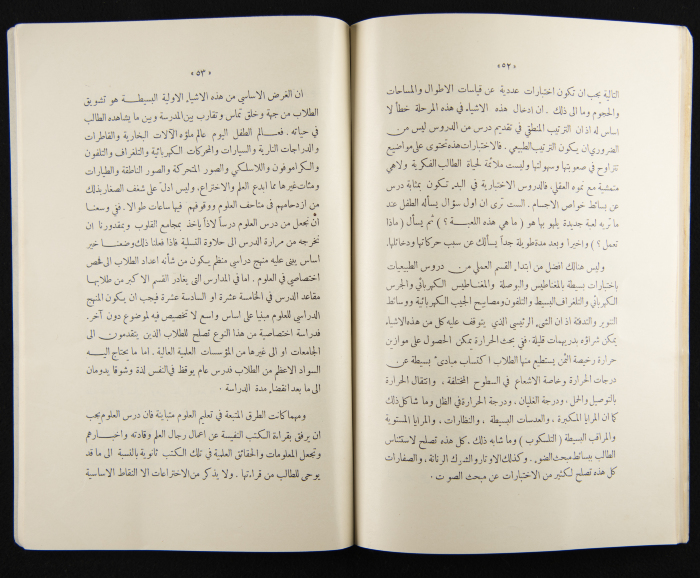 «٥٢»
التالية يجب ان تكون اختبارات عددية عن قياسات الاطوال والمساحات
والحجوم وما الى ذلك . ان ادخال هذه الاشياء في هذه المرحلة خطأ لا
اساس له اذ ان الترتيب المنطقي في تقديم درس من الدروس ليس من
الضروري ان يكون الترتيب الطبيعي . فالاختبارات هذه تحتوي على مواضيع
تتراوح في صعوبتها وسهولتها وليست ملائمة لحياة الطالب الفكرية ولا هي
متمشية مع نموه العقلي. فالدروس الاختبارية في البدء تكون بمثابة درس
عن بسائط خواص الاجسام . الست ترى ان اول سؤال يسأله الطفل عند
ما تريه لعبة جديدة يلهو بها هو ( ما هي هذه اللعبــة ؟ ) ثم يسأل ( ماذا
تعمل ؟ ) واخيرا وبعد مدة طويلة جداً يسألك عن سبب حركاتها ودخائلها.
وليس هنالك افضل من ابتداء القسم العملي من دروس الطبيعيات
باختبارات بسيطة بالمغناطيس والبوصلة والمغنــاطيس الكهربائي والجرس
الكهربائي والتلغراف البسيط والتلفون ومصابيح الجيب الكهربائية ووسائط
التنوير والتدفئة اذ ان الشيء الرئيسي الذي يتوقف عليه كل من هذه الاشياء
يمكن شراؤه بدريهمات قليلة . ففي بحث الحرارة يمكن الحصول على موازين
حرارة رخيصة الثمن يستطيع منها الطلاب اكتساب مبادىء بسيطة عن
درجات الحرارة وخاصة الاشعاع في السطوح المختلفة ، وانتقال الحرارة
بالتوصيل والحمل ، ودرجة الغليان ، ودرجة الحرارة في الظل وما شاكل ذلك
كما ان المرايا المكبرة ، والعدسات البسيطة ، والنظارات ، والمرايا المستوية
والمراقب البسيطة ( التلسكوب ) وما شابه ذلك . كل هذه تصلح لاستئناس
الطالب ببسائط مبحث الضوء . وكذلك الاوتار والشرك الرنانة ، والصفارات
كل هذه تصلح لكثير من الاختبارات عن مبحث الصوت .
«٥٣»
ان الغرض الاساسي من هذه الاشياء الاولية البسيطة هو تشويق
الطلاب من جهة وخلق تماس وتقارب بين المدرسة وبين ما يشاهده الطالب
في حياته . فعــالم الطفل اليوم عالم ملؤه الآلات البخارية والقاطرات
والدراجات النارية والسيارات والمحركات الكهربائية والتلغراف والتلفون
والكراموفون واللاسلكي والصور المتحركة والصور الناطقة والطيارات
ومئات غيرها مما ابدع العلم والاختراع. وليس ادل على شغف الصغار بذلك
من ازدحامهم في متاحف العلوم ووقوفهم فيها ساعات طوالا. ففي وسعنا
ان نجعل من درس العلوم درساً لاذاً ياخذ بمجامع القلوب وبمقدورنا ان
نخرجه من مرارة الدرس الى حلاوة التسلية فاذا فعلنا ذلك وضعنا خير
اساس يبنى عليه منهج دراسي منظم يكون من شأنه اعداد الطلاب الى فحص
اختصاصي في العلوم . اما في المدارس التي يغادر القسم الاكبر من طلابها
مقاعد الدرس في الخامسة عشرة او السادسة عشرة فيجب ان يكون المنهج
الدراسي للعلوم مبنيا على اساس واسع لا تخصيص فيه لموضوع دون آخر.
فدراسة اختصاصية من هذا النوع تصلح للطلاب الذين يتقدمون الى
الجامعات او الى غيرها من المؤسسات العلمية العالية . اما ما تحتاج اليــه
السواد الاعظم من الطلاب فدرس عام يوقظ في النفس لذة وشوقا يدومان
الى ما بعد انقضاء مدة الدراسة .
ومهما كانت الطرق المتبعة في تعليم العلوم متباينة فان درس العلوم يجب
ان يرفق بقراءة الكتب النفيسة عن اعمال رجال العلم وقادته واخبــارهم
وتجعل المعلومات والحقائق العلمية في تلك الكتب ثانوية بالنسبة الى ما قد
يوحى للطالب من قراءتها . ولا يذكر من الاختراعات الا النقاط الاساسية